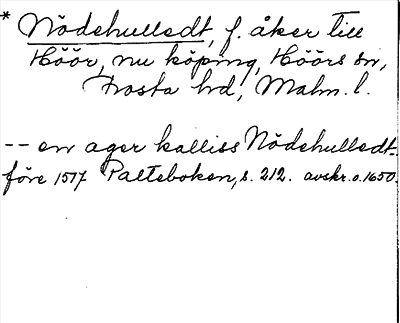 * Nödehullsdt, f. åker till
Höör, nu köping, Höörs sn,
Frosta hd, Malm. l.
-- en ager kalliss Nödehullsdt.
före 1517 Palteboken, s. 212. avskr. o. 1650.